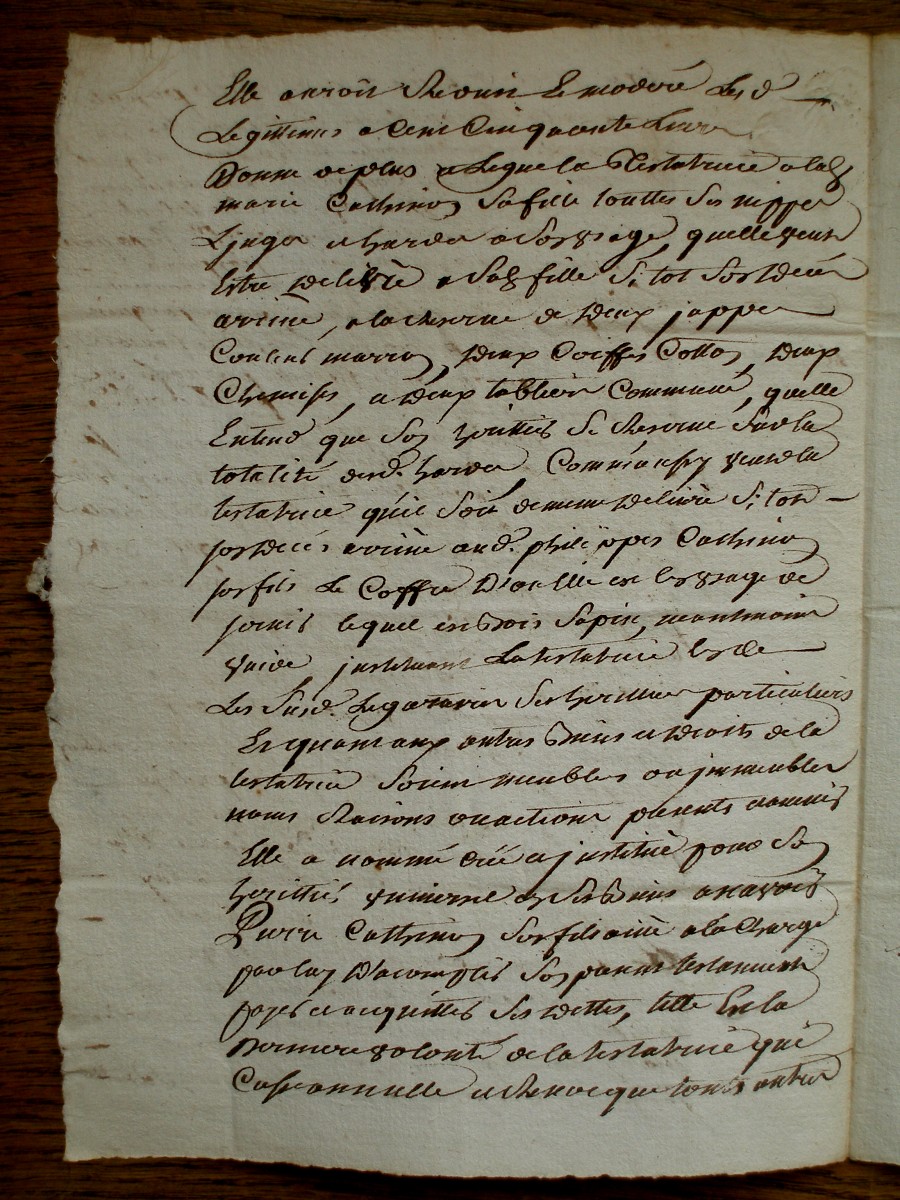 Elle auroit Reduit Et moderé Lesd
Legittimes a Cent Cinquante Livres
Donne de plus a Legue la Testatrice a lad
marie Cathino sa fille touttes ses nippes
Linges et hardes a son usage, quelle veut
Estre delivré a sad fille si tot son decés
arrivé, a la Reserve de deux juppes
Couleur marron, deux Coiffes Cotton, deux
Chemises, et deux tabliers Communs, quelle
Entend que son herittier se Reserve sur la
totalité desd. hardes, Comme aussy veut la
testatrice qu'il soit de meme delivré si tot
son decés arrivé aud. philippes Cathino
son fils Le Coffre D'ont Elle est en usage de
fermer lequel est Bois sapin, neantmoins
vuide, justituant La testatrice lesd
Les susd. Legataires ses herittiers particuliers
Et quant aux autres Biens et droits de la
testatrice soient meubles ou jmmeubles
noms Raisons et actions presents et avenir
Elle a nommé créé et justitué pour son
heritier universel en ses Biens a scavoir
Pierre Cathino son fils ainé a la Charge
par luy D'acomplir son present testament
payer et acquitter ses dettes, telle Est la
derniere volonté de la testatrice qui
Casse annulle et Revoque tout autres